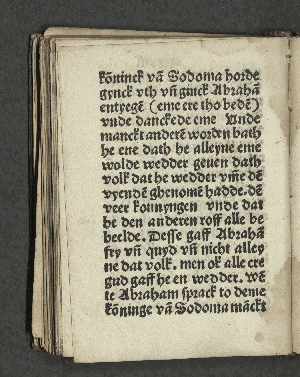 kōninck vā Sodoma horde
gynck vth vn̄ ginck Abrahā
entyegē (eme ere tho bedē)
vnde danckede eme Vnde
manckt anderē worden bath
he ene dath he alleyne eme
wolde wedder geuen dath
volk dat he wedder vm̄e dē
vyendē ghenome hadde. dē
veer konnyngen vnde dat
he den anderen roff alle be
heelde. Desse gaff Abrahā
fry vn̄ quyd vn̄ nicht alley
ne dat volk. men ok alle ere
gud gaff he en wedder. Wē
te Abraham sprack to deme
kōninge vā Sodoma mācks